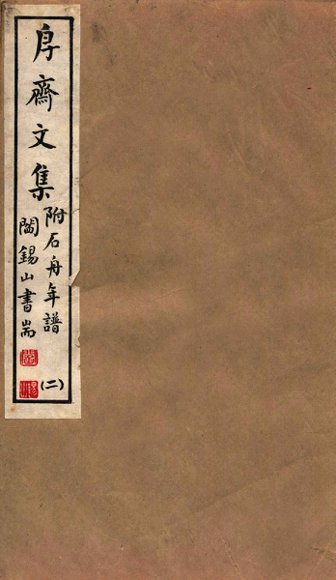 㐆齋文集
附石舟年譜
閻錫山書耑
(二)